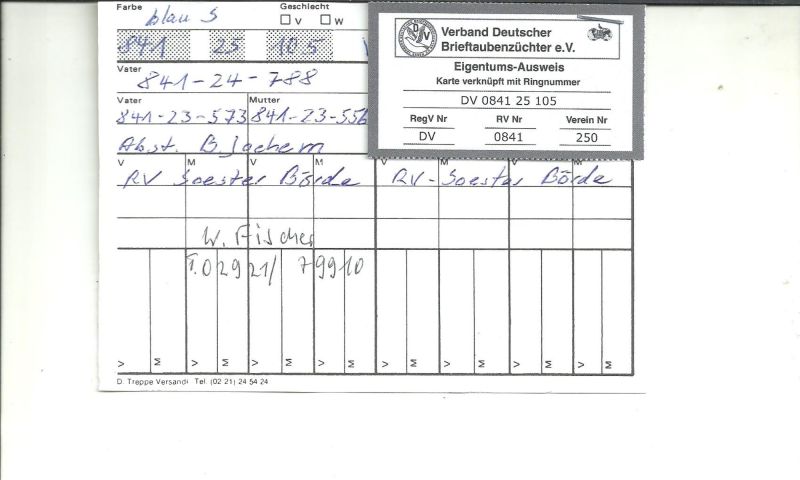 Farbe Geschlecht
blau S V W
841 25 105
Vater
841-24-788
Vater Mutter
841-23-573 841-23-556
Abst. B Jachem
V M V M V M V M
RV Soester Börde RV-Soester Börde
W. Fischer
T. 02921/ 79910
V M V M V M V M V M V M V M V M
D. Treppe Versand Tel. (02 21) 24 54 24
DV
Verband Deutscher
Brieftaubenzüchter e.V.
Eigentums-Ausweis
Karte verknüpft mit Ringnummer
DV 0841 25 105
RegV Nr RV Nr Verein Nr
DV 0841 250